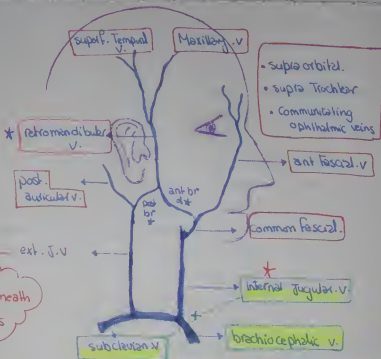 superf. Temporal
v.
Maxillary.v
• supra orbital.
• supra Trochlear
• Communicating
ophthalmic veins
* retromandibular
v.
ant fascial.v
post.
auricular v.
ant br
*
post
br
*
common fascial.
ext. J. v
*
internal jugular.v.
neath
s
+
subclavian v
brachiocephalic v.